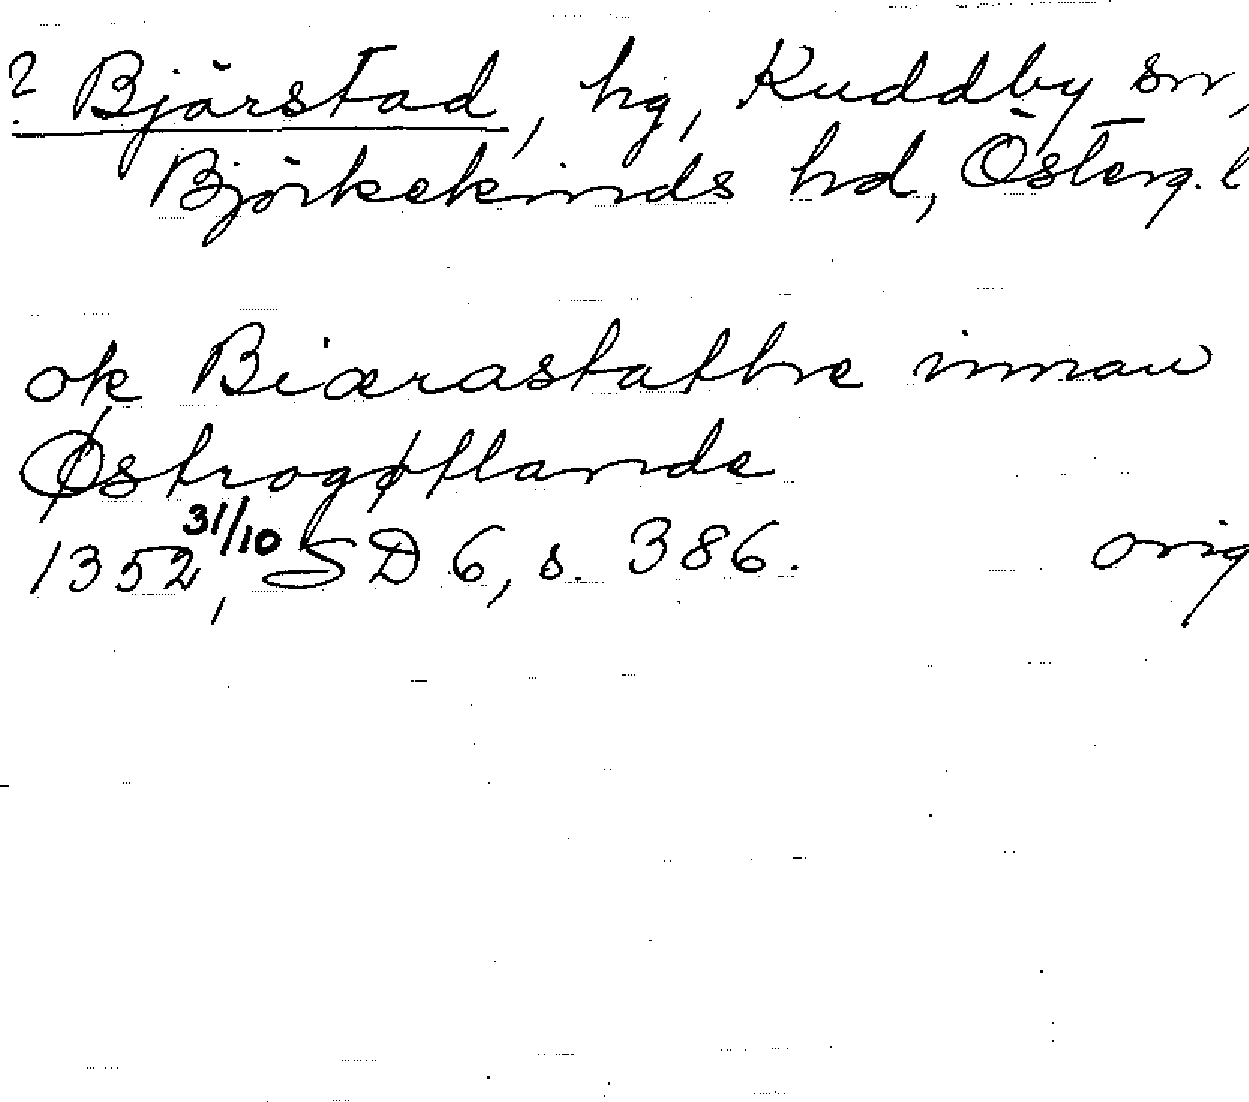 ? Bjärstad, hg, Kuddby sn,
Björkekinds hd, Österg. l
ok Biærastathæ innan
Østrogøtlande
1352 31/10, SD 6, s. 386. orig